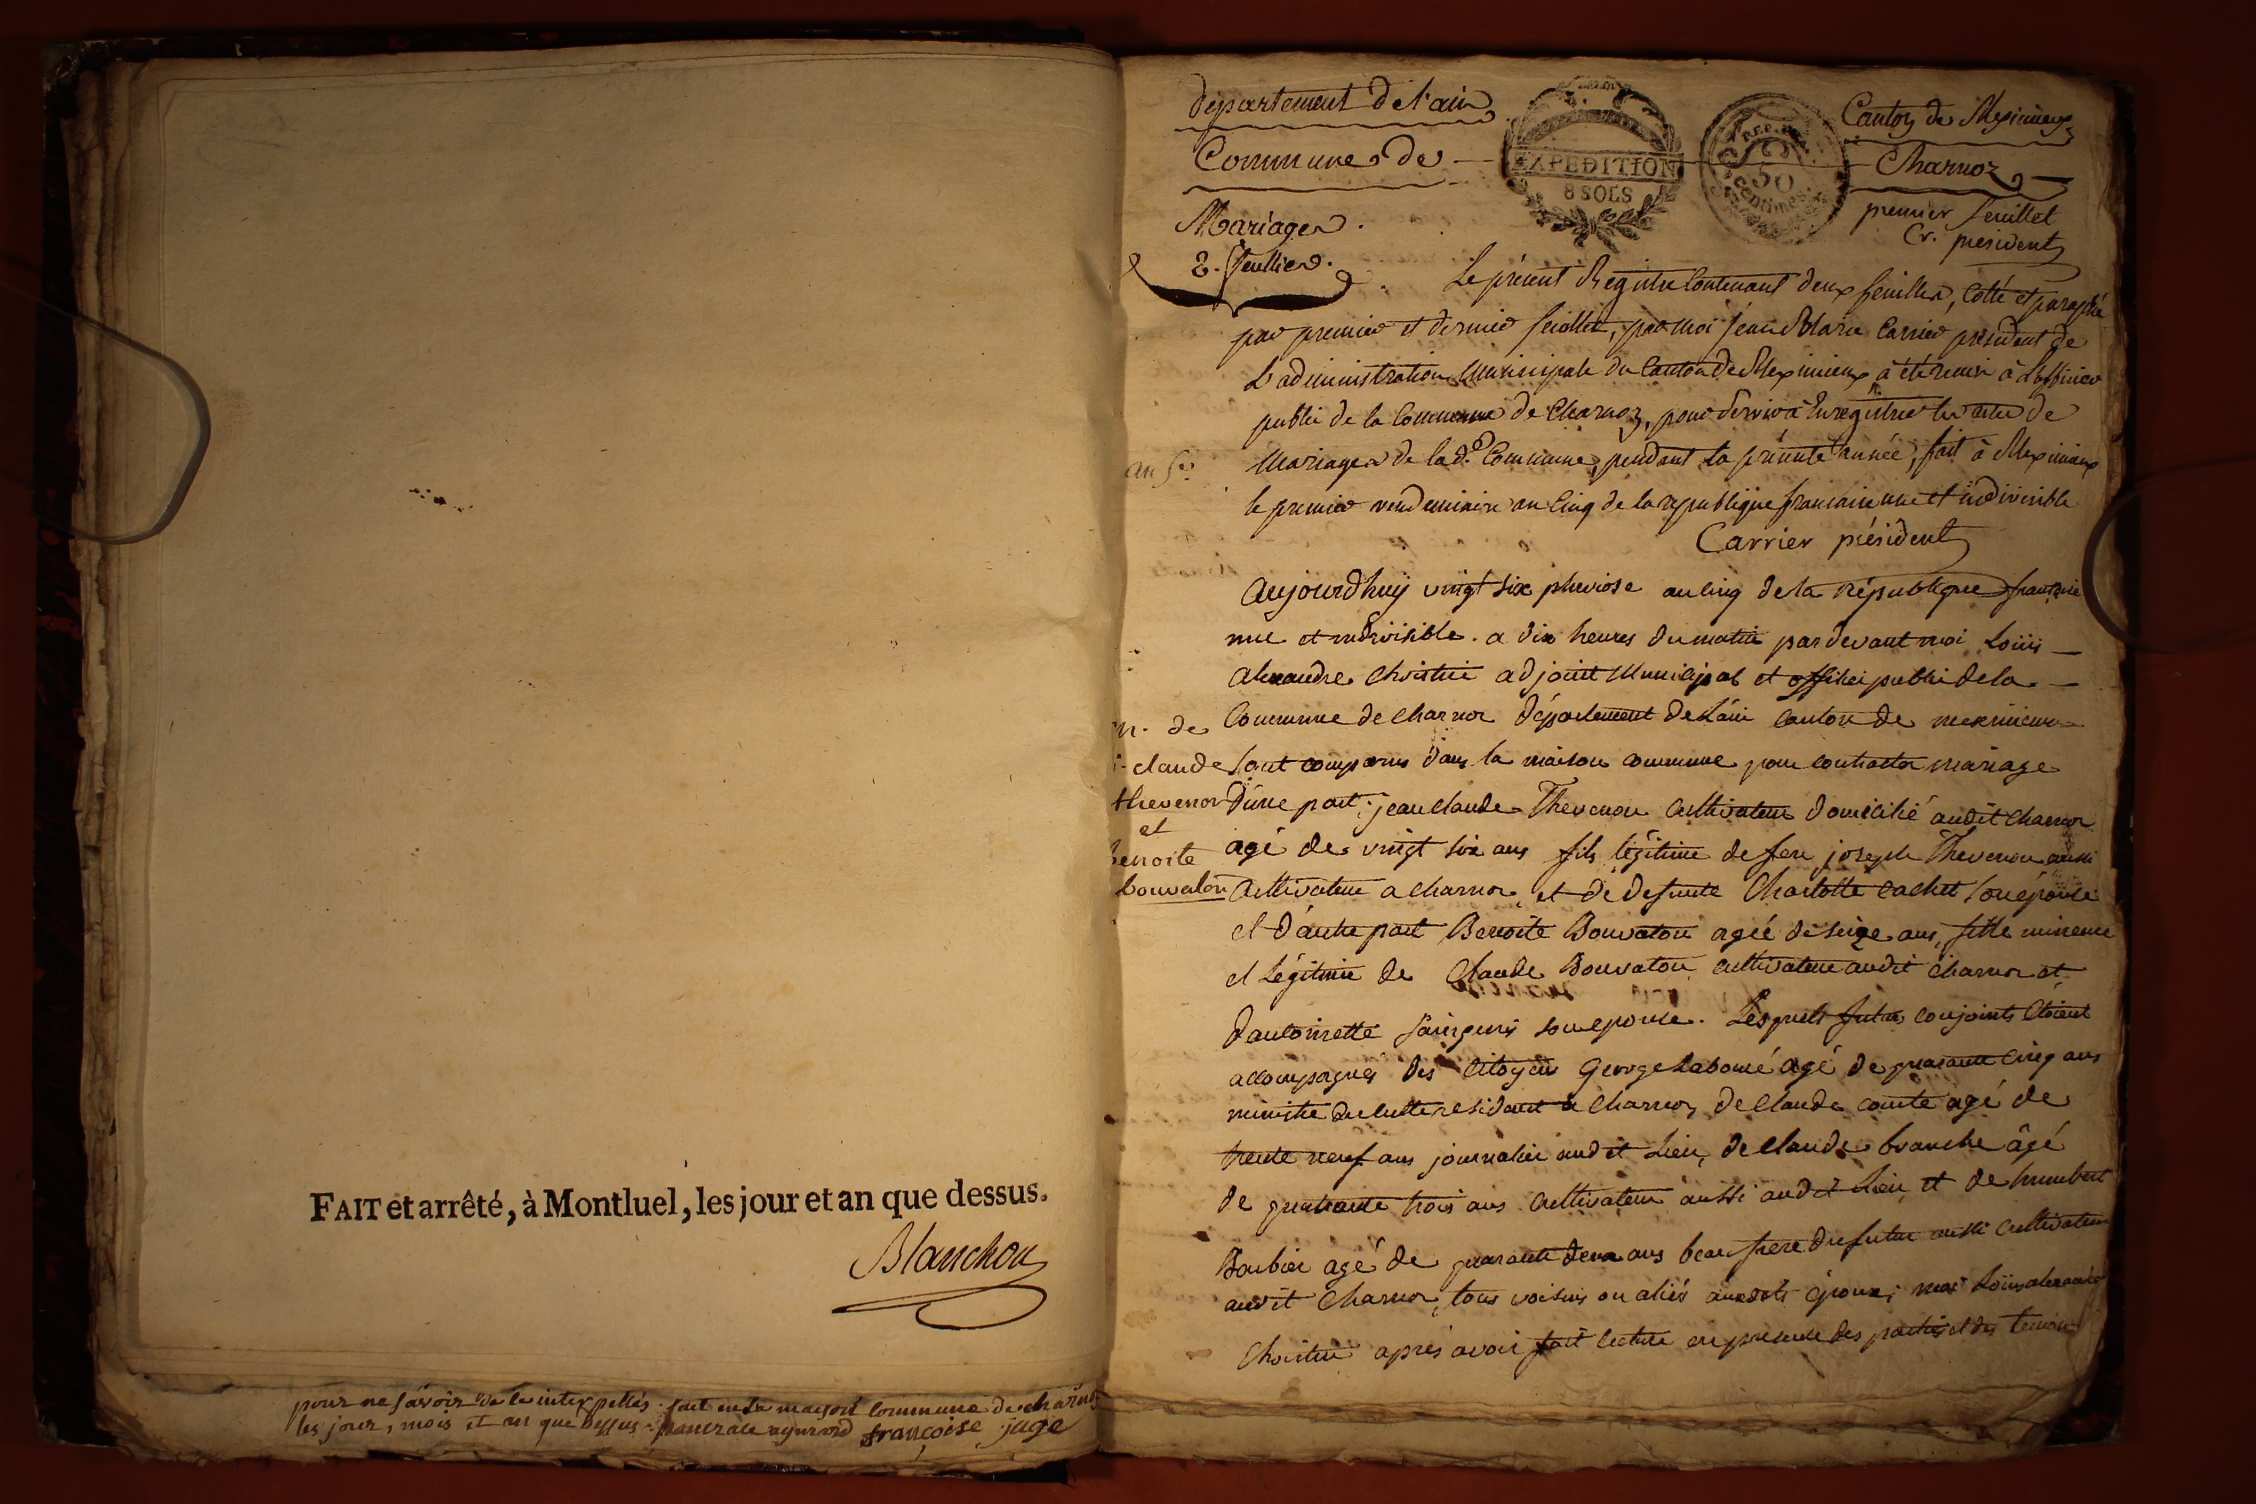 FAIT et arrêté, à Montluel, les jour et an que dessus.
Blanchon
pour ne savoir de le interpellés. fait en la maison commune de charnoz
les jour, mois et an que dessus. françoise juge
département de l'ain
Commune de
Mariages.
2. feuilles.
EXPEDITION
8 SOLS
REP. FRA.
50
centimes
Canton de Meximieux
Charnoz
premier feuillet
Cr. président
Le présent Registre contenant deux feuilles, cotté et paraphé
par premier et dernier feuillet, par moi jean Marie Carrier président de
L'administration Municipale du Canton de Meximieux à été remis à l'officier
public de la Commune de Charnoz, pour servir à Enregistrer les actes de
an 5e.
Mariages de lad.e Commune, pendant la présente année, fait à Meximieux
le premier vendemiaire an Cinq de la republique francaise une et indivisible
Carrier président
Aujourdhuy vingt six pluviose an cinq de la république française
une et indivisible. a dix heures du matin pardevant moi Louis
Alexandre Christin adjoint Municipal et officier public de la
Commune de charnoz département de L'ain canton de meximieux
sont comparus dans la maison commune pour contracter mariage
D'une part; jean claude Thevenon cultivateur domicilié audit charnoz
agé de vingt six ans fils légitime de feu joseph Thevenon aussi
cultivateur a charnoz, et de defunte Charlotte cachet son épouse
m. de
claude
thevenon
et
benoite
bouvaton
et d'autre part Benoite Bouvaton agée de seize ans, fille mineure
et Légitime de Claude Bouvaton cultivateur audit charnoz et
d'antoinette son epouse. Lesquels futurs conjoints étoient
accompagnés des citoyens George Laboué agé de quarante cinq ans
ministre du culte residant a Charnoz, de Claude comte agé de
trente neuf ans journalier audit Lieu, de Claude branche âgé
de quarante trois ans cultivateur aussi audit Lieu et de humbert
Barbier agé de quarante deux ans beau frere du futur aussi cultivateur
audit Charnoz, tous voisins ou aliés auxdits époux; moi Louis alexandre
Christin après avoir fait lecture en presence des parties et des temoins